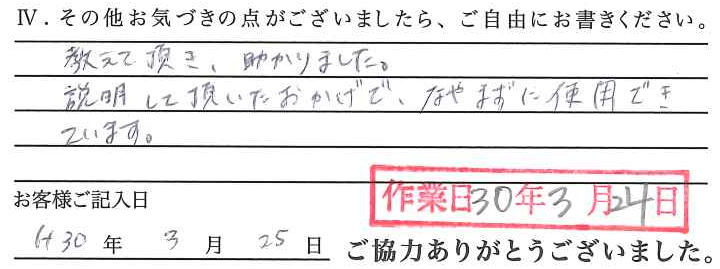 Ⅳ．その他お気づきの点がございましたら、ご自由にお書きください。
教えて頂き、助かりました。
説明して頂いたおかげで、なやまずに使用でき
ています。
お客様ご記入日
作業日30年3月24日
H30年3月25日
ご協力ありがとうございました。